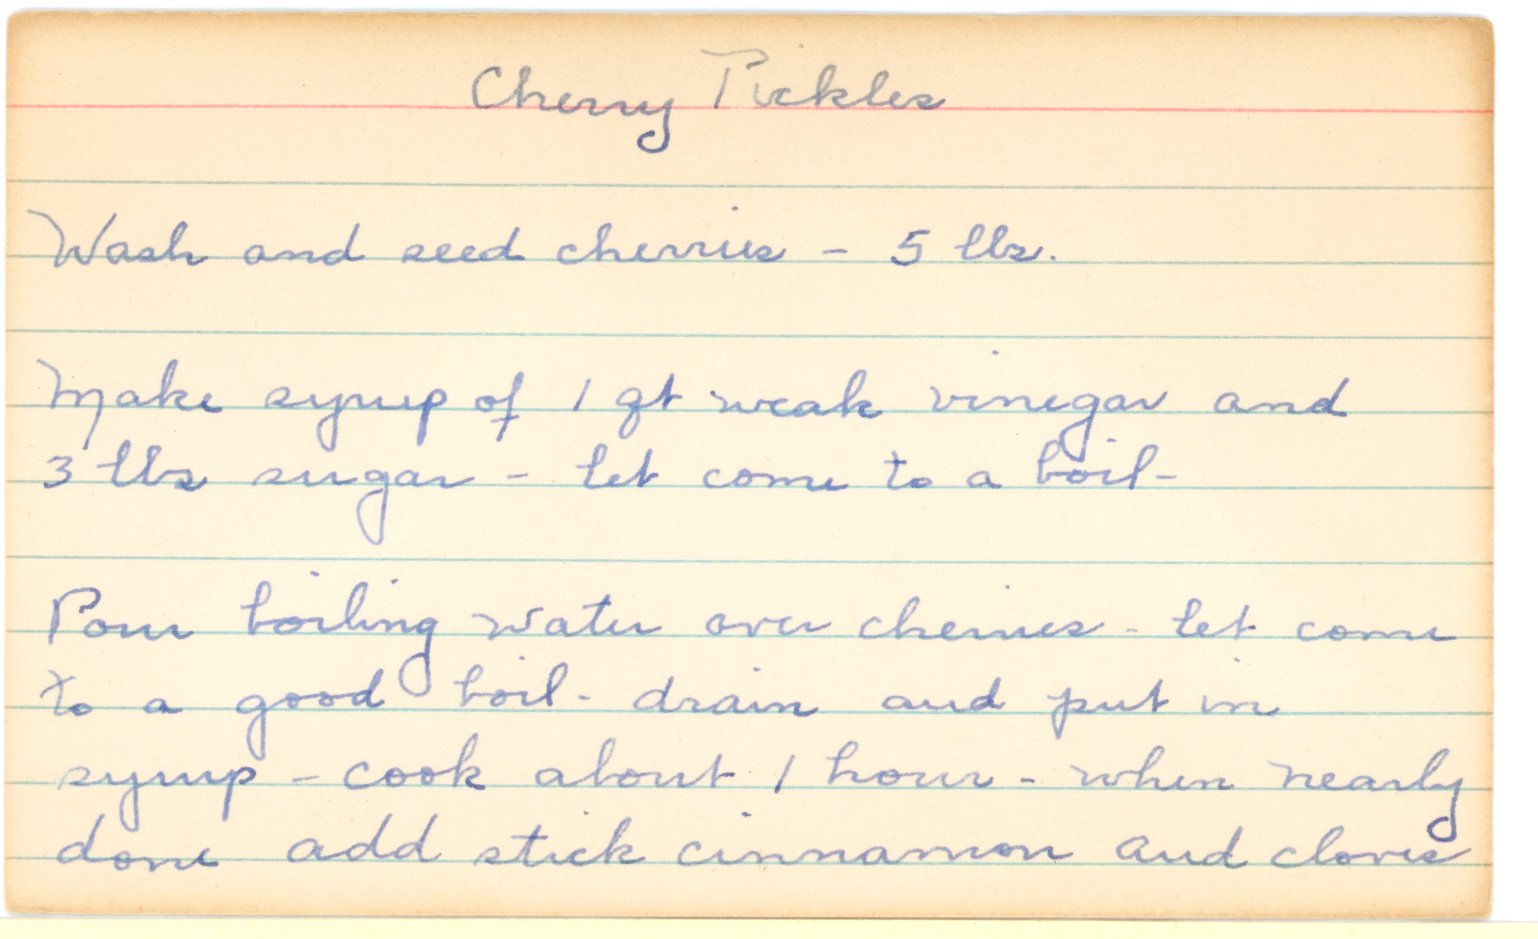 Cherry Pickles
Wash and seed cherries - 5 lbs.
Make syrup of 1 qt weak vinegar and
3 lbs sugar - let come to a boil-
Pour boiling water over cherries - let come
to a good boil - drain and put in
syrup - cook about 1 hour - when nearly
done add stick cinnamon and cloves